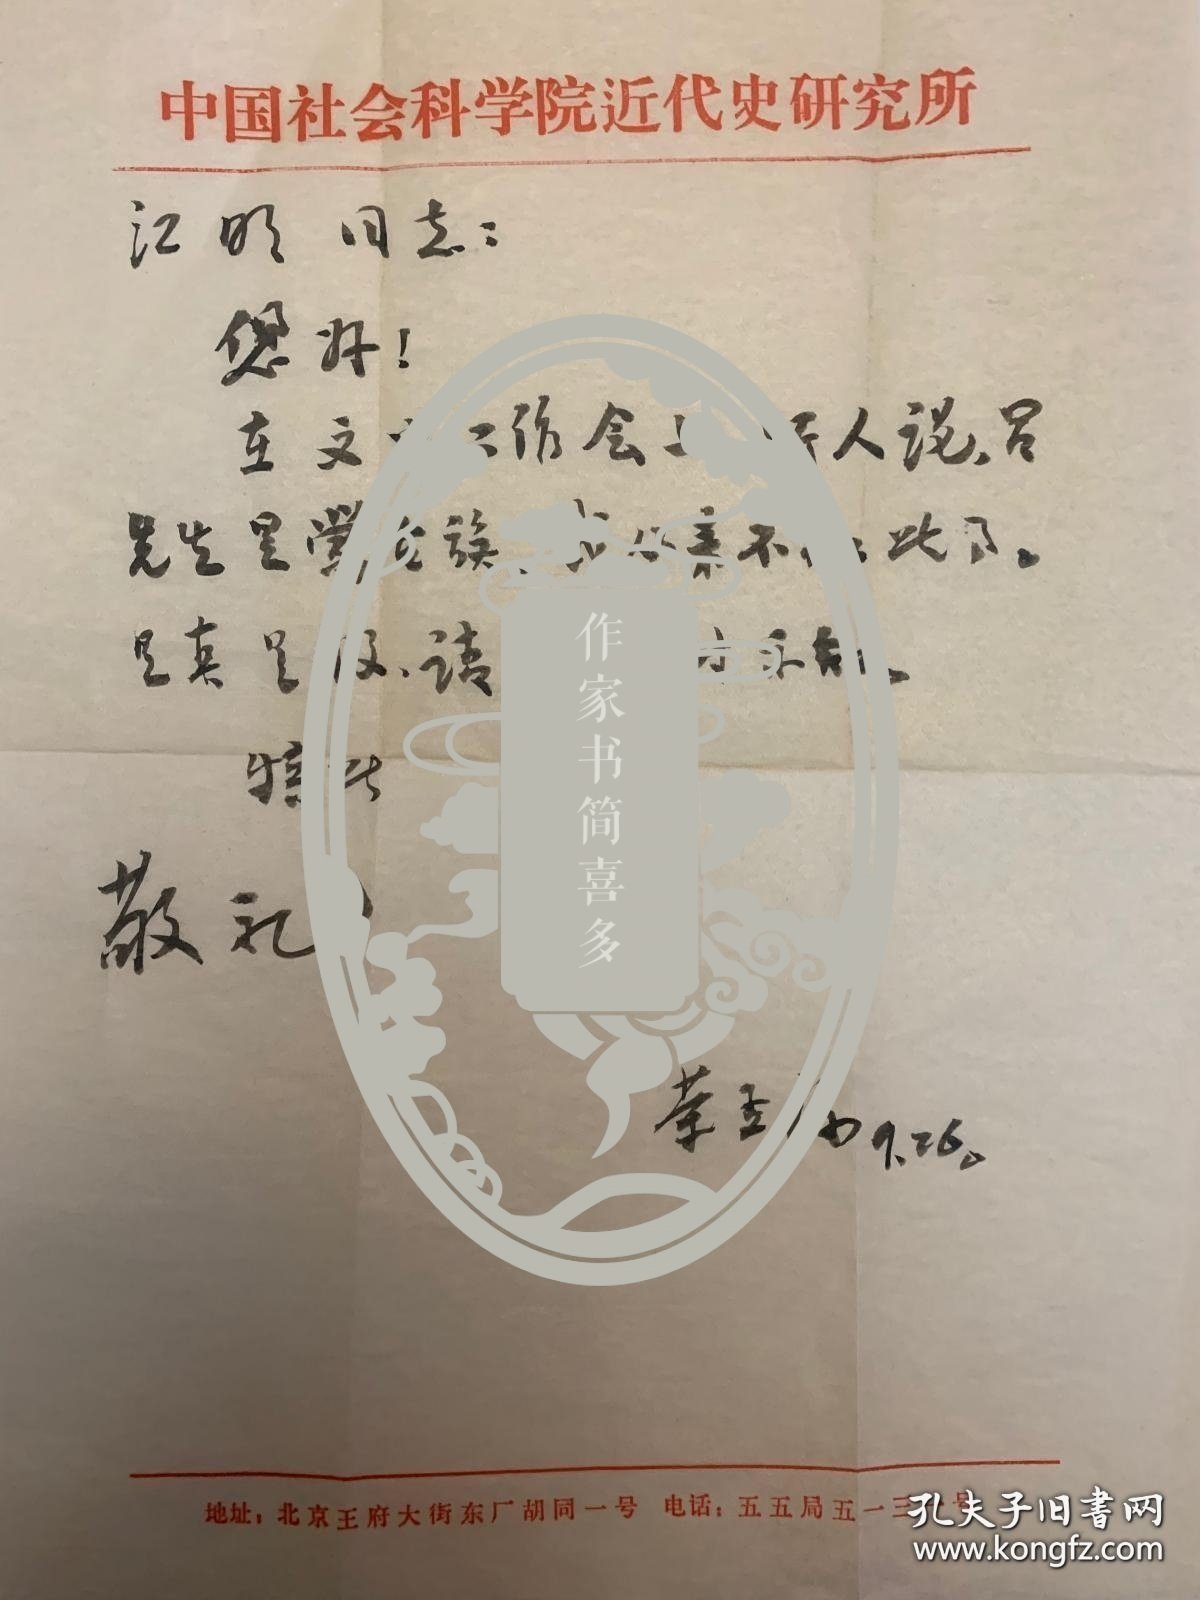 中国社会科学院近代史研究所
江明同志：
您好！
在文 工作会上 有人说、吕
先生是 族 不 此了。
是真是假、请
特此
敬礼
荣孟 9.26。
作家书简喜多
地址：北京王府大街东厂胡同一号 电话：五五局五一三 号
孔夫子旧书网
www.kongfz.com